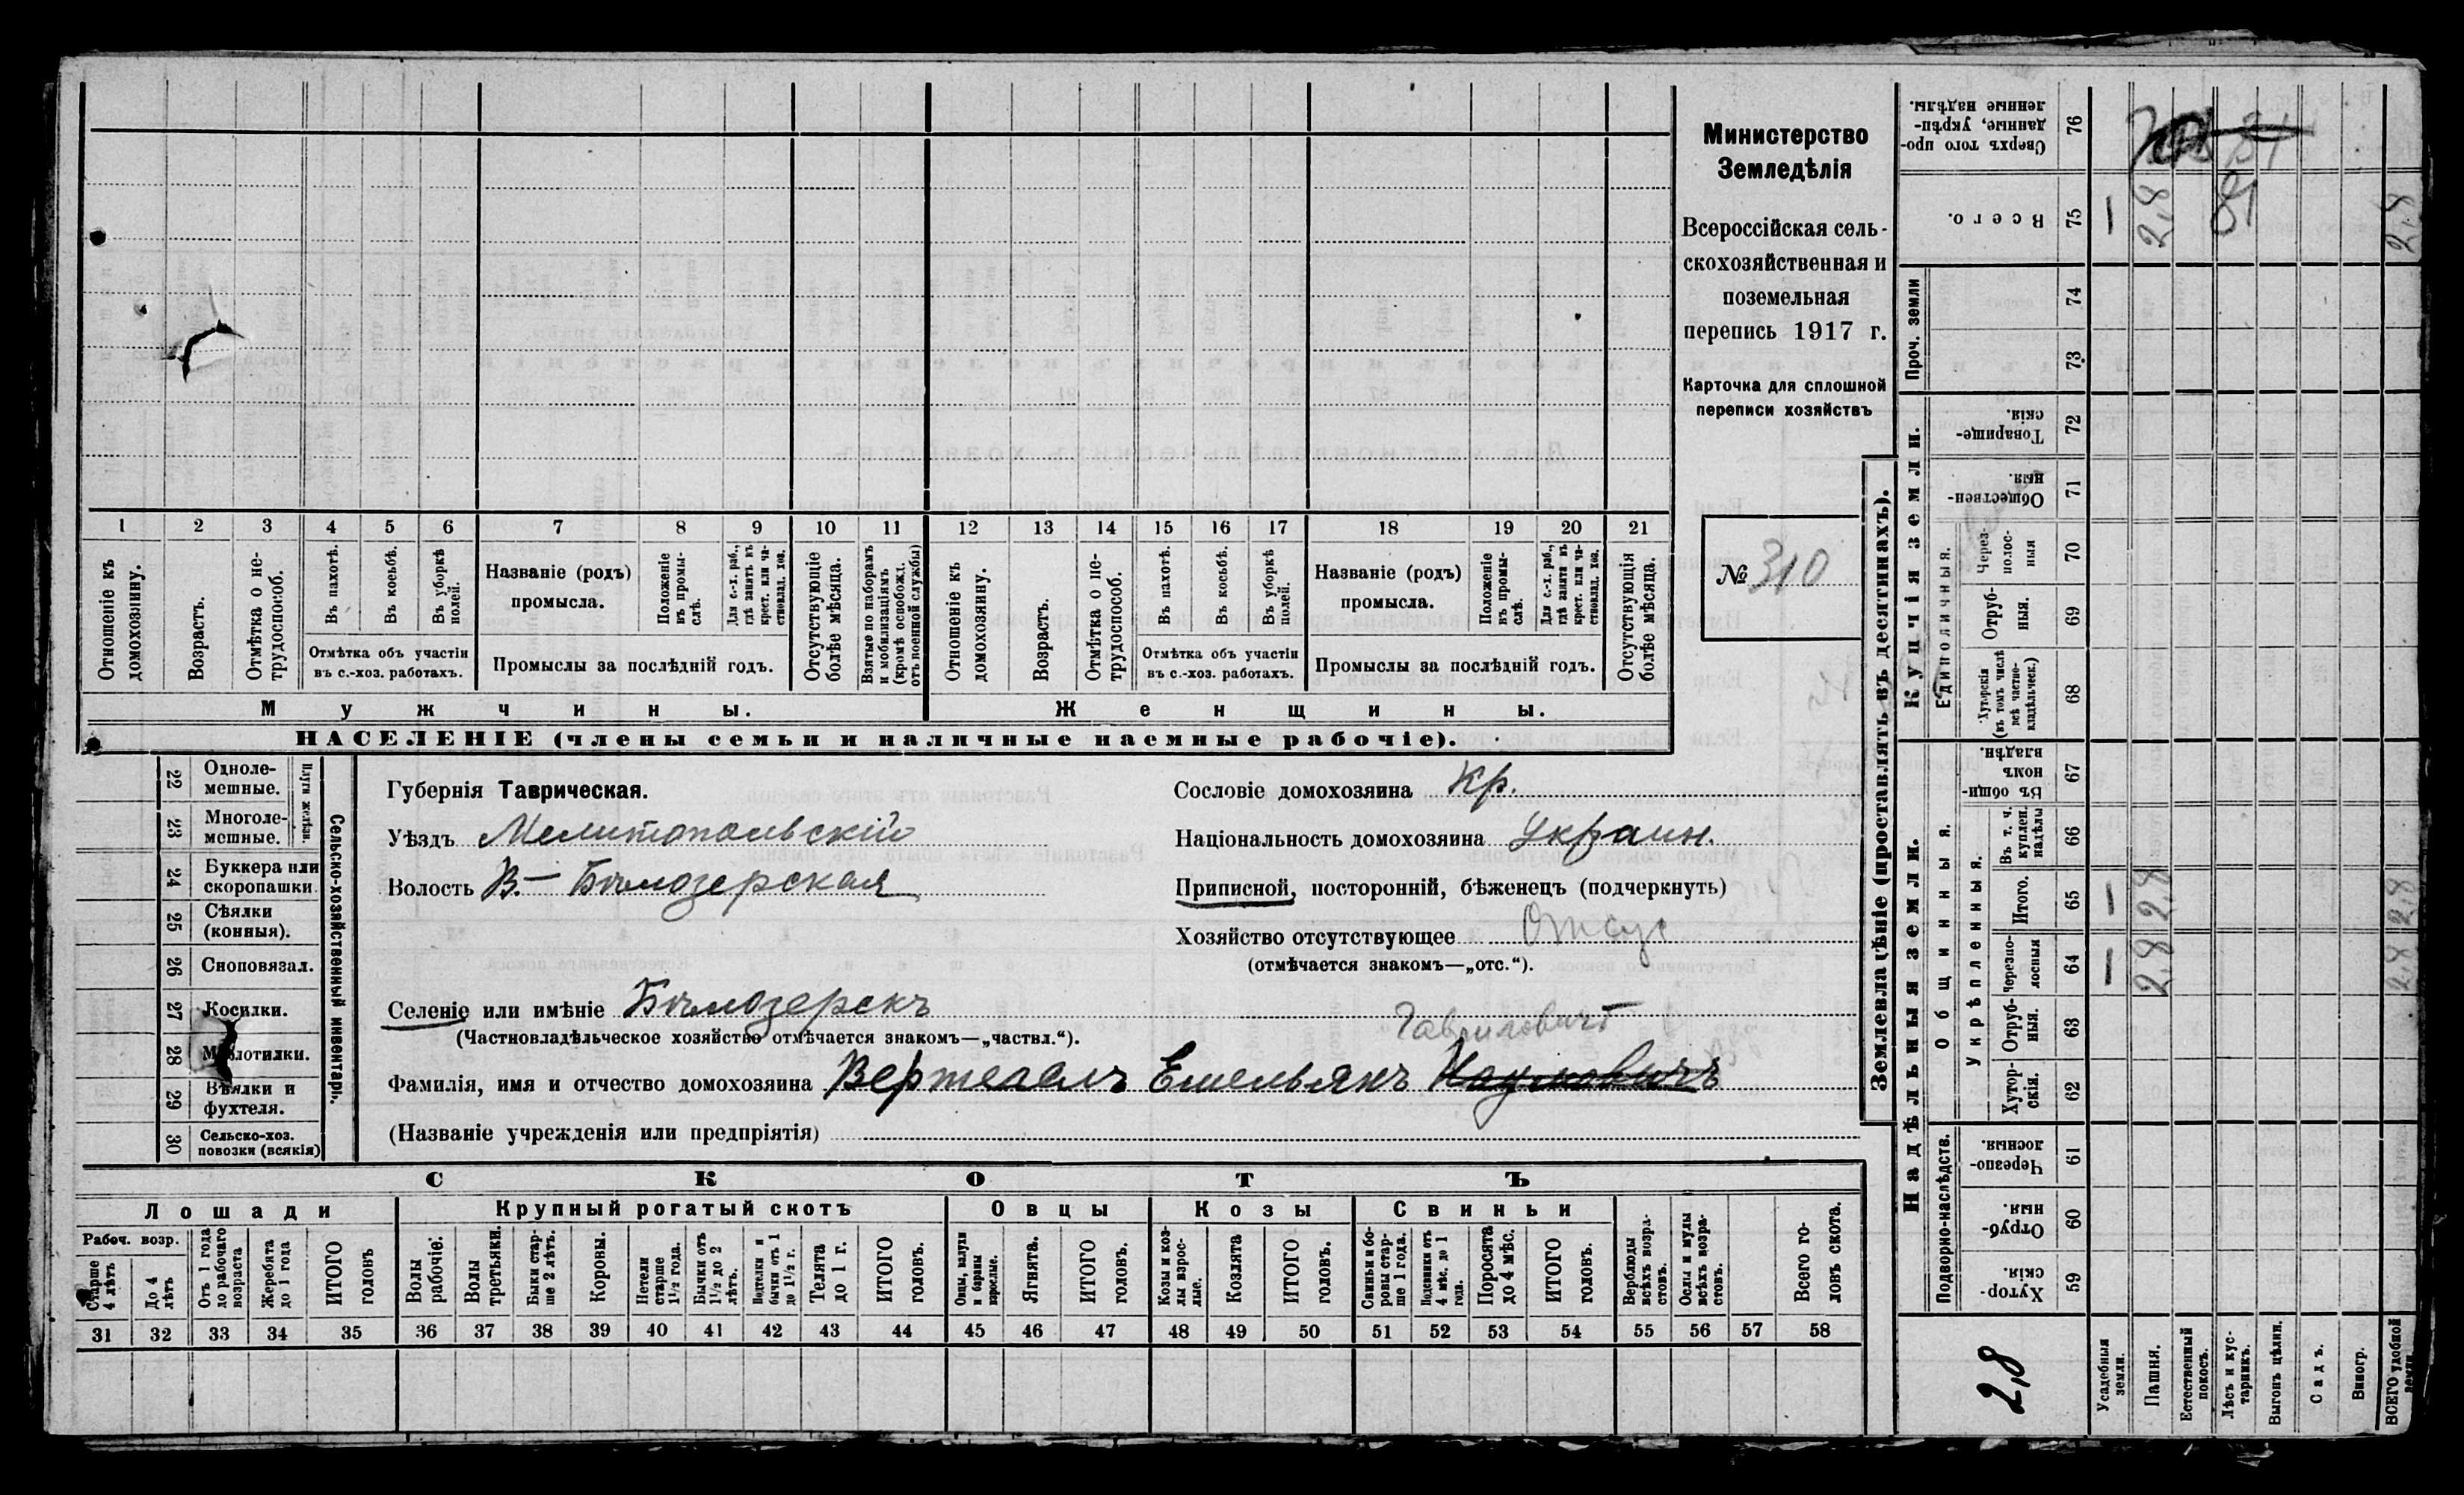 Министерство
Земледѣлія
Всероссійская сель-
скохозяйственная и
поземельная
перепись 1917 г.
Карточка для сплошной
переписи хозяйствъ
№ 310
1 2 3 4 5 6 7 8 9 10 11 12 13 14 15 16 17 18 19 20 21
Отношеніе къ домохозяину.
Возрастъ.
Отмѣтка о не-трудоспособ.
Въ пахотѣ.
Въ косьбѣ.
Въ уборкѣ полей.
Отмѣтка объ участіи
въ с.-хоз. работахъ.
Названіе (родъ)
промысла.
Положеніе въ промы-слѣ.
Для с.-х. раб., гдѣ занятъ въ крест. или ча-стновлад. хоз.
Промыслы за послѣдній годъ.
Отсутствующіе болѣе мѣсяца.
Взятые по наборамъ и мобилизаціямъ (кромѣ освобожд. отъ военной службы)
Отношеніе къ домохозяину.
Возрастъ.
Отмѣтка о не-трудоспособ.
Въ пахотѣ.
Въ косьбѣ.
Въ уборкѣ полей.
Отмѣтка объ участіи
въ с.-хоз. работахъ.
Названіе (родъ)
промысла.
Положеніе въ промы-слѣ.
Для с.-х. раб., гдѣ занята въ крест. или ча-стновлад. хоз.
Промыслы за послѣдній годъ.
Отсутствующія болѣе мѣсяца.
Мужчины.
Женщины.
НАСЕЛЕНІЕ (члены семьи и наличные наемные рабочіе).
22 Одноле-мешные.
23 Многоле-мешные.
Плуги желѣзн.
24 Буккера или скоропашки.
25 Сѣялки (конныя).
26 Сноповязал.
27 Косилки.
28 Молотилки.
29 Вѣялки и фухтеля.
30 Сельско-хоз. повозки (всякія)
Сельско-хозяйственный инвентарь.
Губернія Таврическая.
Уѣздъ Мелитопольскій
Волость В.- Бѣлозерская
Селеніе или имѣніе Бѣлозерскъ
(Частновладѣльческое хозяйство отмѣчается знакомъ—„частвл.“).
Сословіе домохозяина Кр.
Національность домохозяина Украин.
Приписной, посторонній, бѣженецъ (подчеркнуть)
Хозяйство отсутствующее Отсут
(отмѣчается знакомъ—„отс.“).
Гавриловичъ
Фамилія, имя и отчество домохозяина Вертегелъ Емельянъ Наумовичъ
(Названіе учрежденія или предпріятія)
СКОТЪ
Лошади
Крупный рогатый скотъ
Овцы
Козы
Свиньи
Рабоч. возр.
Старше 4 лѣтъ
До 4 лѣтъ
Отъ 1 года до рабочаго возраста
Жеребята до 1 года
ИТОГО головъ
Волы рабочіе.
Волы третьяки.
Быки стар-ше 2 лѣтъ.
Коровы.
Нетели старше 1½ года.
Бычки отъ 1½ до 2 лѣтъ.
Подтелки и бычки отъ 1 до 1½ г.
Телята до 1 г.
ИТОГО головъ.
Овцы, валухи и бараны взрослые.
Ягнята.
ИТОГО головъ.
Козы и коз-лы взрос-лые.
Козлята
ИТОГО головъ.
Свиньи и бо-ровы стар-ше 1 года.
Подсвинки отъ 4 мѣс. до 1 года.
Поросята до 4 мѣс.
ИТОГО головъ.
Верблюды всѣхъ возра-стовъ.
Ослы и мулы всѣхъ возра-стовъ.
Всего го-ловъ скота.
31 32 33 34 35 36 37 38 39 40 41 42 43 44 45 46 47 48 49 50 51 52 53 54 55 56 57 58
Землевладѣніе (проставлять въ десятинахъ).
Надѣльныя земли.
Купчія земли.
Проч. земли
Подворно-наслѣдств.
Общинныя.
Укрѣпленныя.
Единоличныя.
59 Хутор-скія.
60 Отруб-ныя.
61 Черезпо-лосныя.
62 Хутор-скія.
63 Отруб-ныя.
64 Черезпо-лосныя
65 Итого.
66 Въ т. ч. куплен. надѣлы
67 Въ общин-номъ владѣн.
68 Хуторскія (въ томъ числѣ всѣ частно-владѣльческ.)
69 Отруб-ныя.
70 Через-полос-ныя
71 Обществен-ныя.
72 Товарище-скія.
73
74
75 Всего.
76 Сверхъ того про-данные, укрѣп-ленные надѣлы.
2,8
Усадебныя земли.
Пашня.
Естественный покосъ.
Лѣсъ и кус-тарникъ.
Выгонъ цѣлин.
Садъ.
Виногр.
ВСЕГО удобной земли.
1 2,8 2,8
1 2,8 2,8
1 2,8 91 2,8